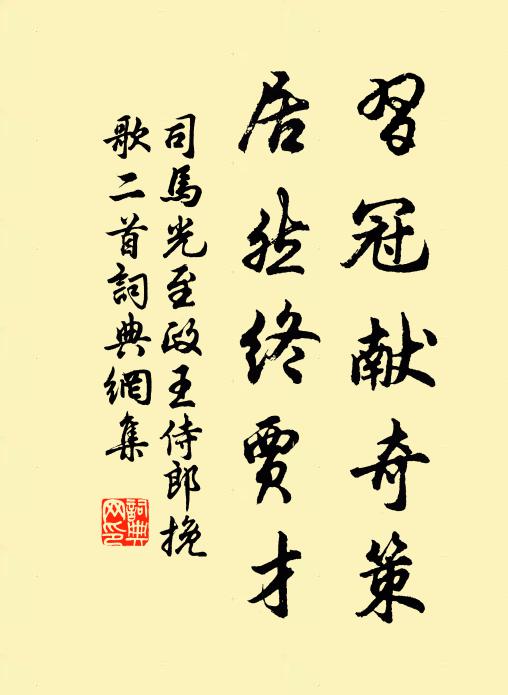 习冠献奇策
居然终贾才
司馬光至政王侍郎挽
歌二首詞典網集
詞典
网印